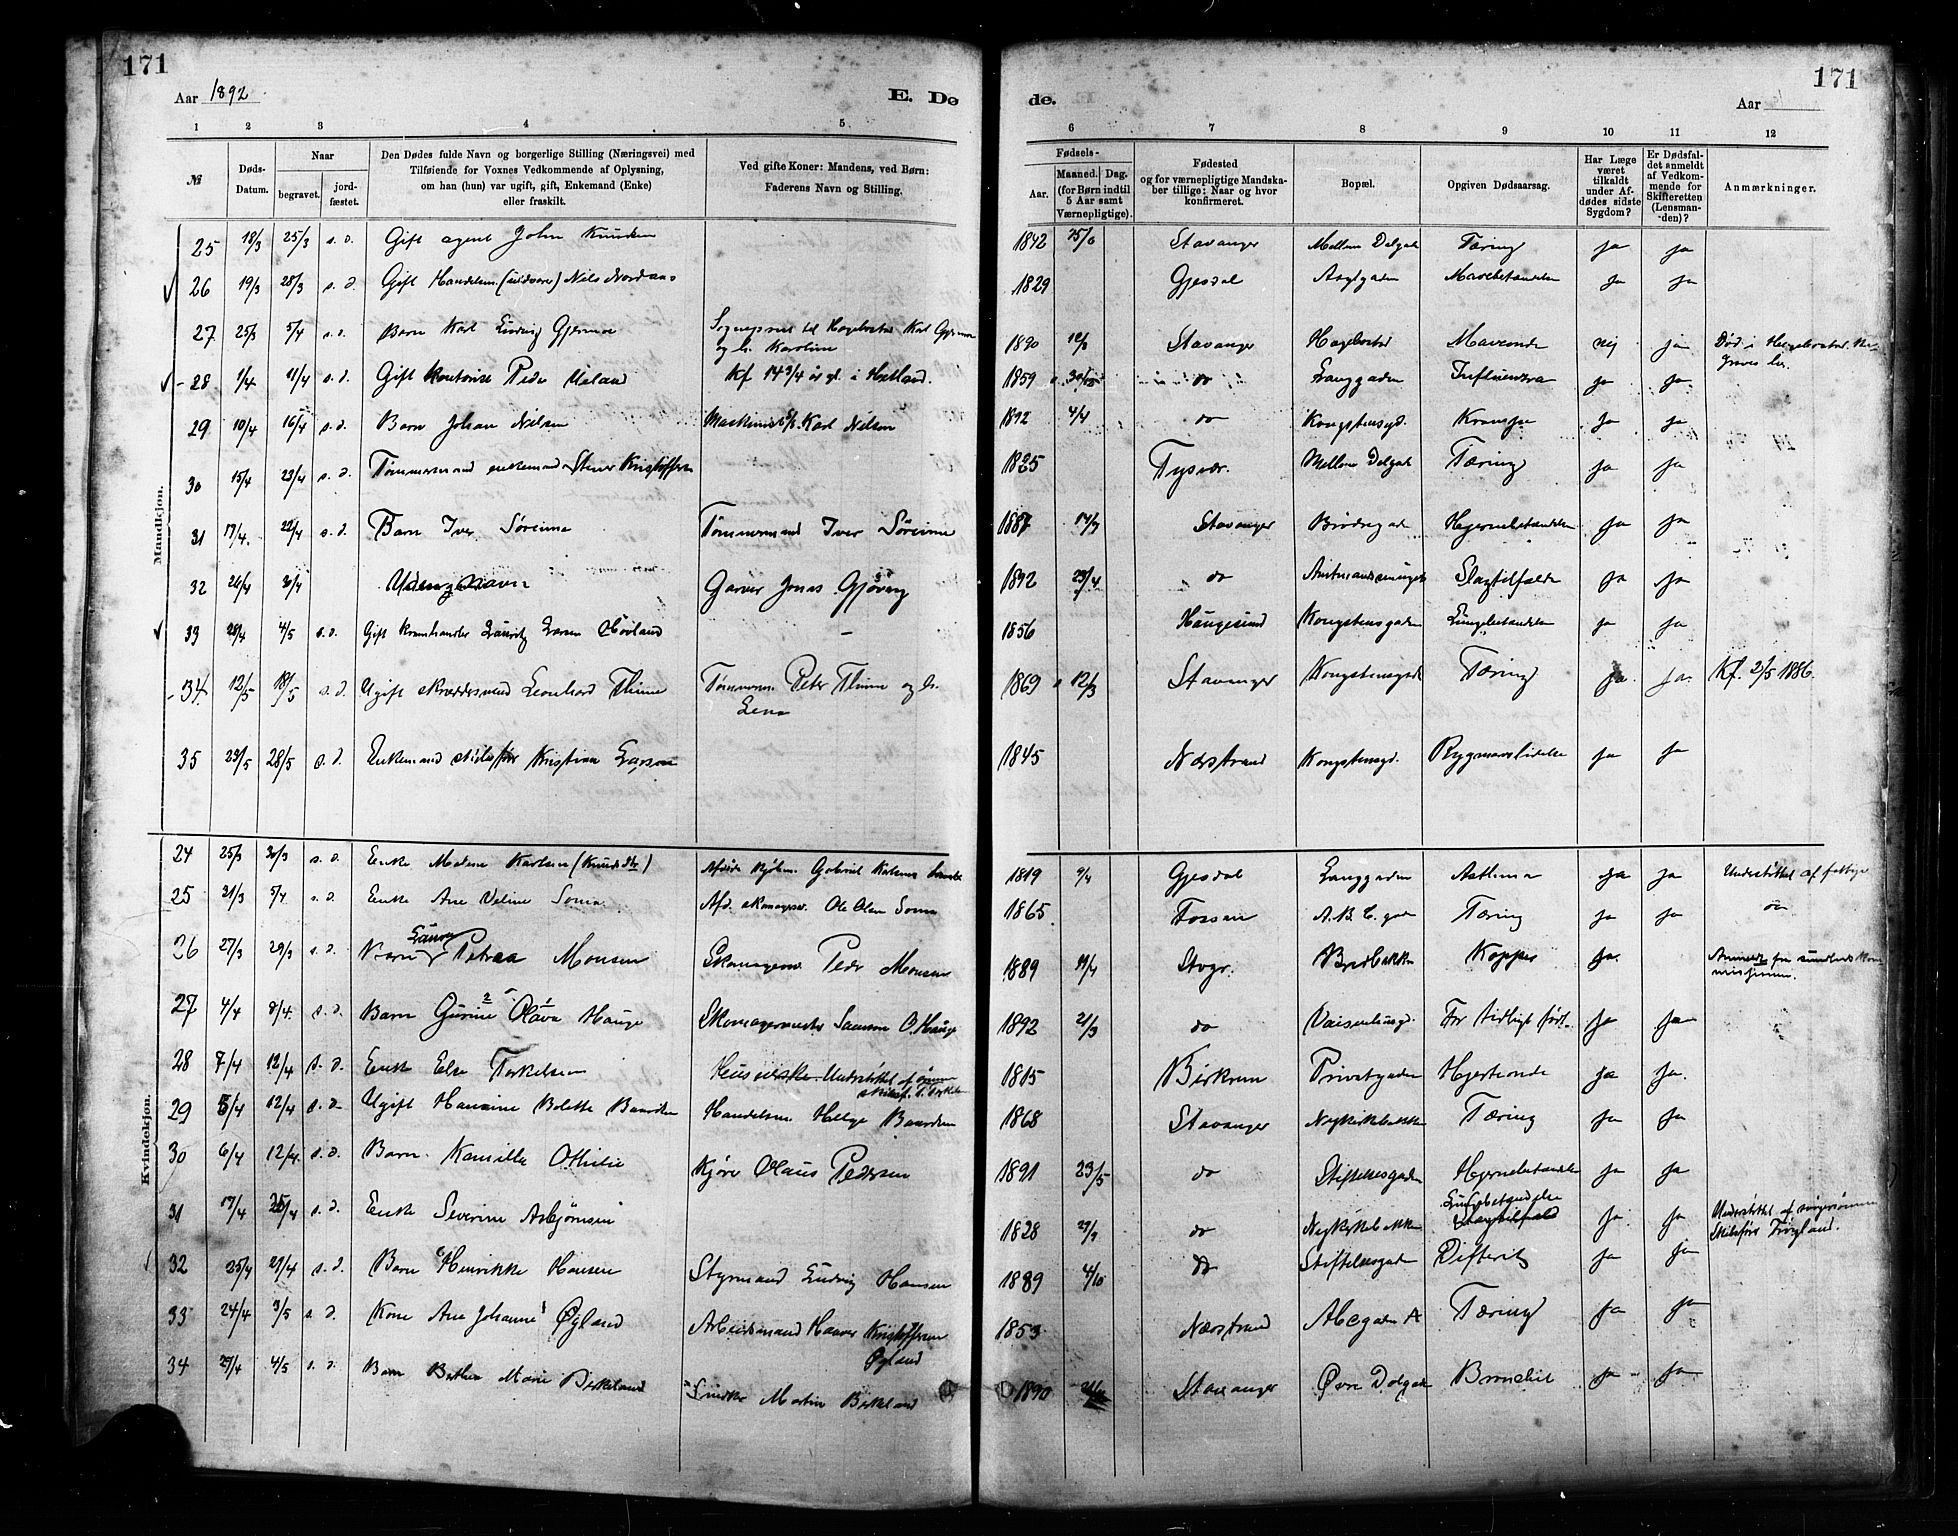 171
171
Aar 1892
E. Dø
de.
Aar
1 2 3 4 5 6 7 8 9 10 11 12
№
Døds-
Datum.
Naar
begravet.
jord-
fæstet.
Den Dødes fulde Navn og borgerlige Stilling (Næringsvei) med
Tilføiende for Voxnes Vedkommende af Oplysning,
om han (hun) var ugift, gift, Enkemand (Enke)
eller fraskilt.
Ved gifte Koner: Mandens, ved Børn:
Faderens Navn og Stilling.
Fødsels-
Aar.
Maaned. Dag.
(for Børn indtil
5 Aar samt
Værnepligtige).
Fødested
og for værnepligtige Mandska-
ber tillige: Naar og hvor
konfirmeret.
Bopæl.
Opgiven Dødsaarsag.
Har Læge
været
tilkaldt
under Af-
dødes sidste
Sygdom?
Er Dødsfal-
det anmeldt
af Vedkom-
mende for
Skifteretten
(Lensman-
den)?
Anmærkninger.
Mandkjøn.
25 18/3 25/3 s. d. Gift agent John Knudsen 1842 Stavanger Mellem Dalgade Tæring ja ja
26 19/3 28/3 s. d. Gift Handelsm. Nils Nordaas 1829 Gjesdal Asylgaden Mavebetændelse ja ja
27 25/3 5/4 s. d. Barn Karl Ludvig Gjermoe Sogneprest til Hægebostad Karl Gjermoe
og h. Karoline 1890 Stavanger Hægebostad Maveonde nej ja Død i Hægebostad. Be-
graves her.
28 1/4 11/4 s. d. Gift kontorist Peder Ueland Kf. 14 3/4 år gl. i Hetland. 1859 do Langgaden Influenza ja ja
29 10/4 16/4 s. d. Barn Johan Nilsen Maskinist Karl Nilsen 1892 4/4 do Kongstensgd. Krampe ja ja
30 15/4 23/4 s. d. Tømmermand enkemand Stener Kristoffersen 1825 Tysvær. Mellem Dalgade Tæring ja ja
31 17/4. 22/4 s. d. Barn Iver Søreime Tømmermand Iver Søreime 1887 14/7 Stavanger Birdsgade Hjernebetændelse ja ja
32 26/4 30/4 Uden navn Garver Jonas Gjøveg 1892 23/4 do Slagtilfælde ja ja
33 28/4 4/5 s. d. Gift kramhandler Lauritz Larsen Hovland 1856 Haugesund Kongstensgaden Lungebetændelse ja ja
34. 12/5 18/5 s. d. Ugift skræddersvend Leonhard Thime Tømmerm. Peter Thime og h.
Lena 1869 12/3 Stavanger Kongstensgade Tæring ja ja. Kf. 2/5 1886.
35 23/5 28/5 s. d. Enkemand Kristian Larsen 1845 Nærstrand Kongstensgd. Rygmarvslidelse ja ja
Kvindekjøn.
24 25/3 30/3 s. d. Enke Malene Karlsen (Knudsdtr) Afdøde Kjøbm. Gabriel 1819 Gjesdal Langgaden Asthma ja ja Understøttet af fattigv.
25 31/3 5/4 s. d. Enke Ane Veline Soma Afd. skomager Ole Olsen Soma 1865 Fossan A. B. C. gade Tæring ja ja do
26 27/3 29/3 s. d. Barn Laura Petrea Monsen Skomagersv. Peder Monsen 1889 Stvgr. Bredbakken Kopper ja. Anmeldt fra sundhedskom-
misjonen.
27 4/4 8/4. s. d. Barn Gurine Olava Hauge Skomagermester Samson O. Hauge 1892 2/3 do Vaisenhusgd. For tidligt født ja ja
28 7/4 12/4 s. d. Enke Else Torkelsen Husvilske. Understøttet af sønnen
1815 Birkrem Privatgaden Hjerteonde ja ja.
29 5/4 12/4 s. d. Ugift Hansine Bolette Baardsen Handelsm. Helge Baardsen 1868 Stavanger Nykirkebakken Tæring ja ja
30 6/4 12/4. s. d. Barn. Kamilla Othilie Kjører Olaus Pedersen 1891 23/5 do Stiftelsesgaden Hjernebetændelse ja ja
31 17/4 25/4 s. d. Enke Severine Asbjørnsen 1828 do Nykirkebakken Lungebetændelse
Slagtilfæld ja. ja Understøttet af
32 25/4 29/4 s. d. Barn Henrikke Hansen Styrmand Ludvig Hansen 1889 4/10 do Stiftelsesgaden Difterit ja ja
33 24/4 3/5 s. d. Kone Ane Johanne Øgland Arbeidsmand Haaver Kristoffersen
Øgland 1853 Nærstrand Abcgaden A Tæring ja ja
34 29/4 4/5 s. d. Barn Berthe Marie Birkeland Snedker Martin Birkeland 1890 Stavanger Øvre Dalgade Bronchit ja ja